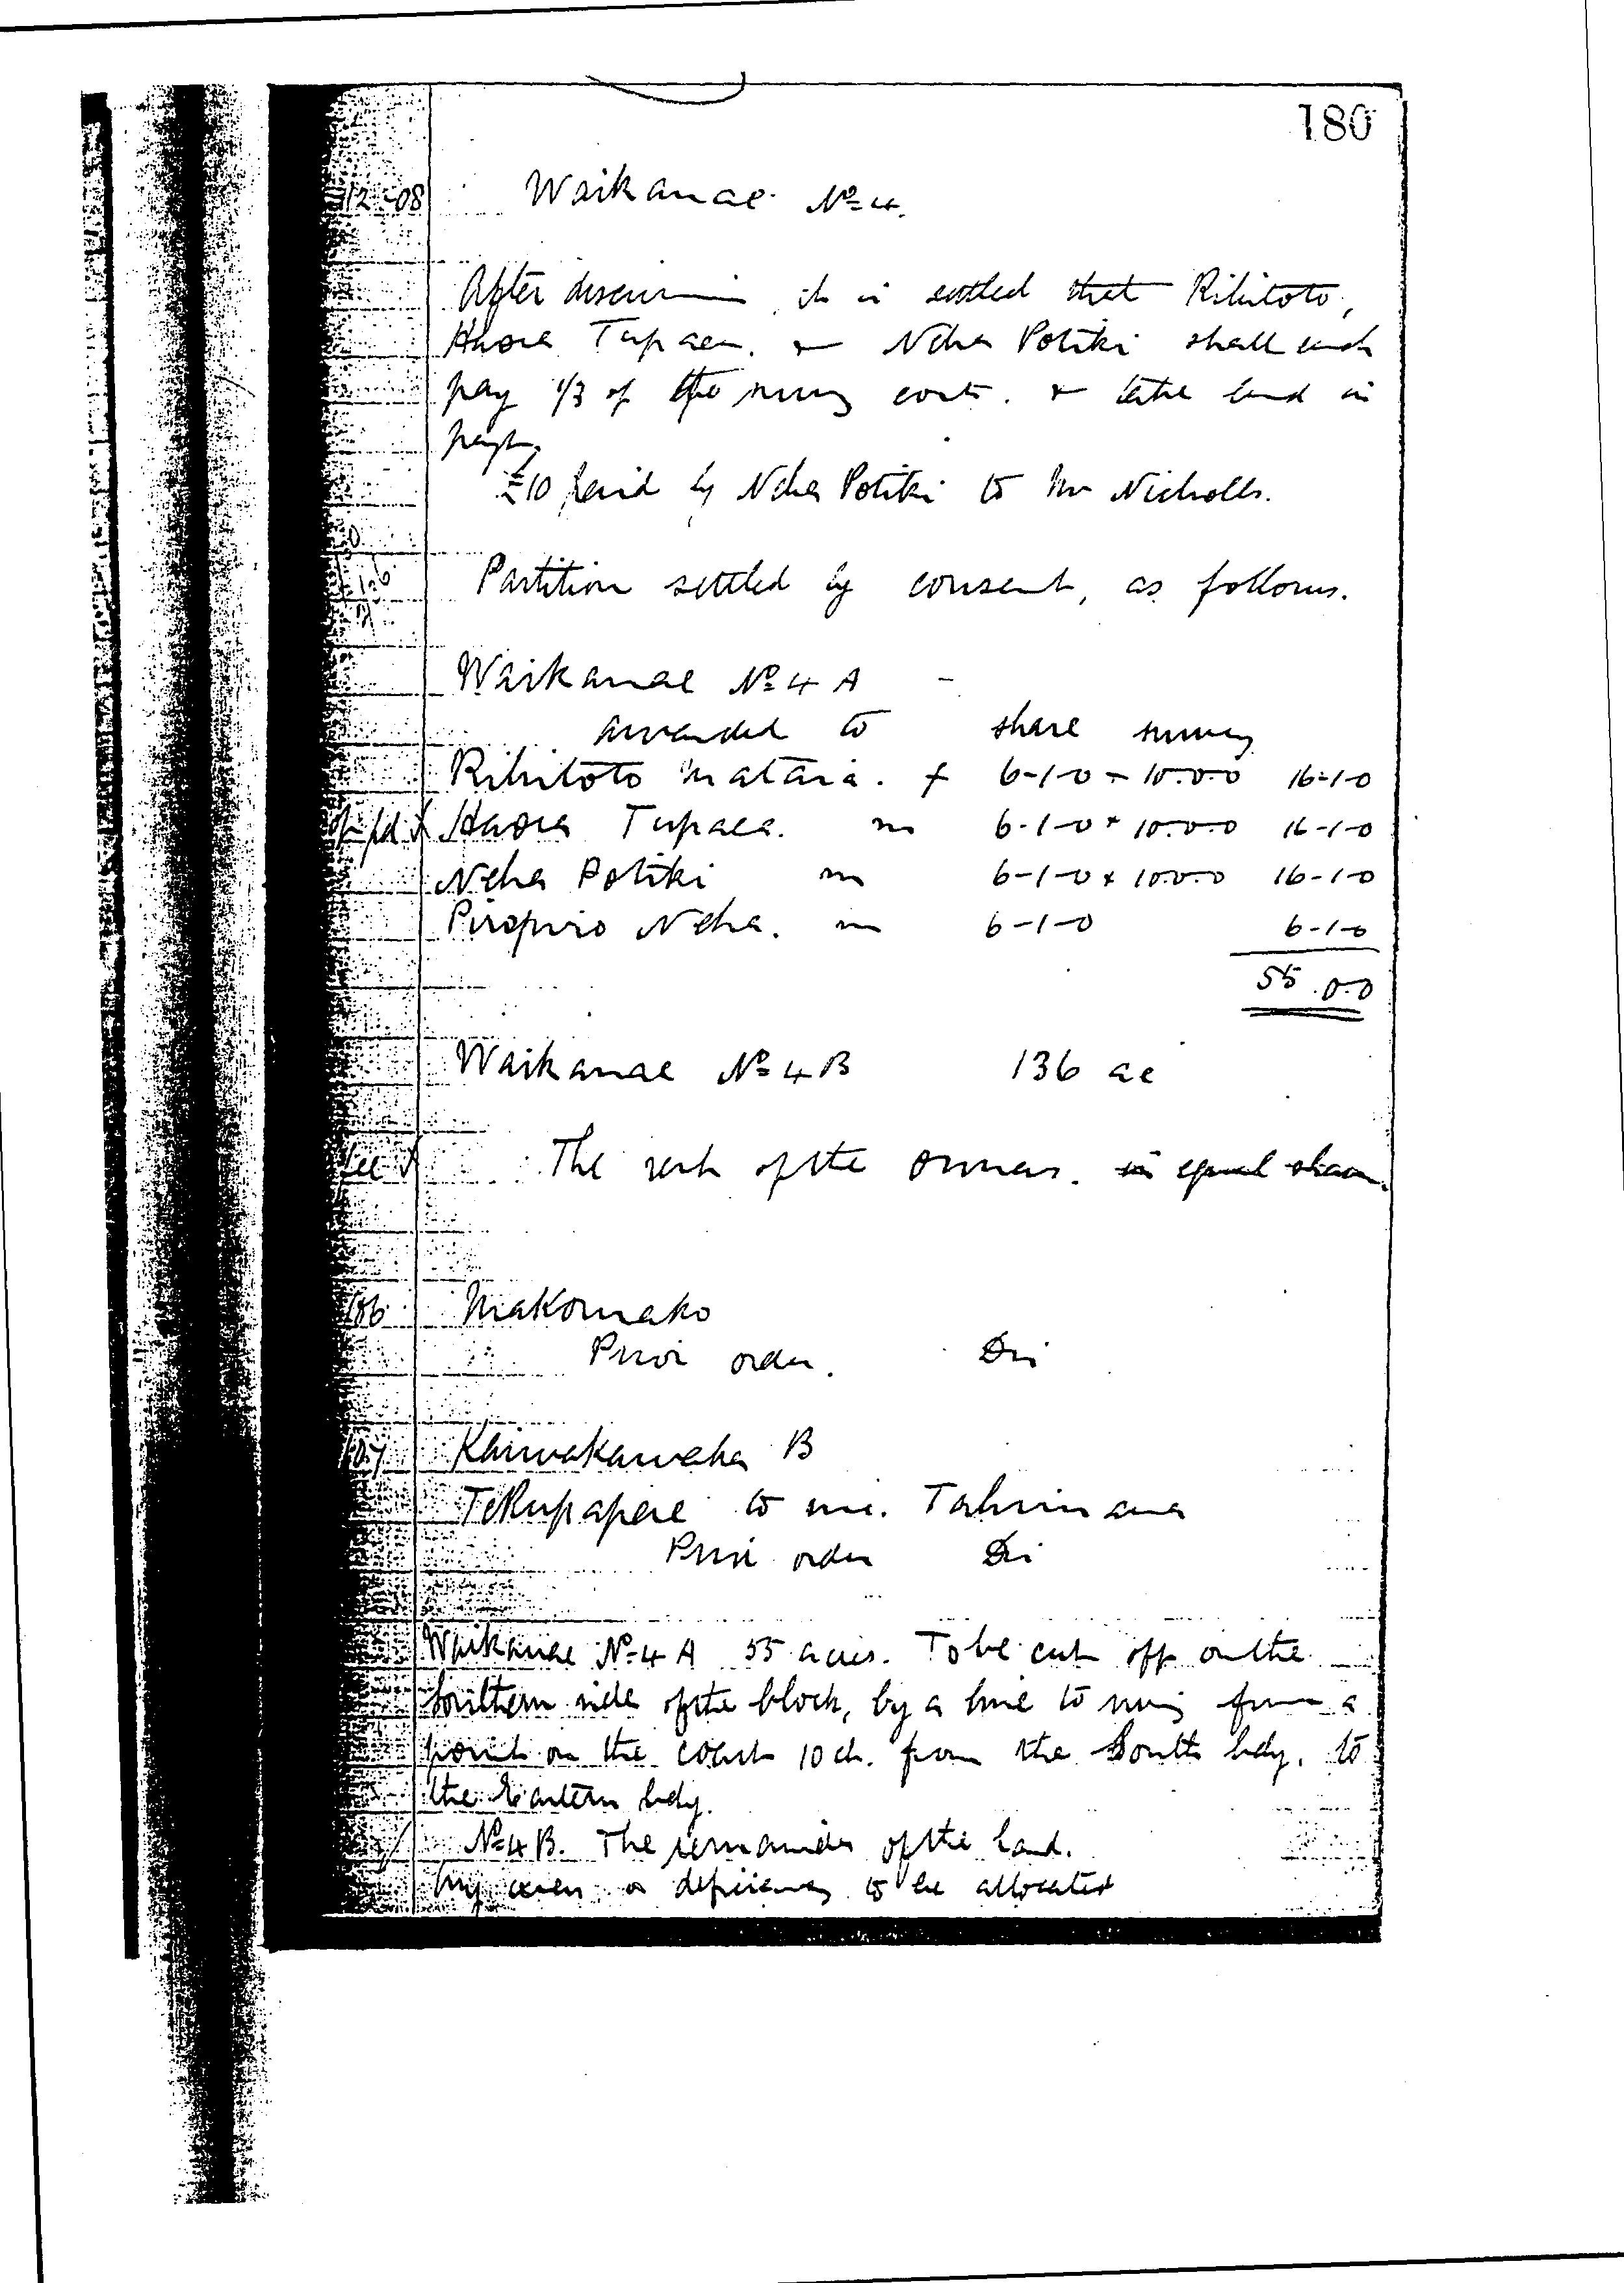 180
12-08 Waikanae No 4.
After discussion, it is settled that Rihitoto,
Haora Tupaea. & Neha Potiki shall each
pay 1/3 of the survey costs. & take land in
paymt.
£10 paid by Neha Potiki to Mr Nicholls.
Partition settled by consent, as follows.
Waikanae No 4 A -
awarded to share survey
Rihitoto Mataia. f 6-1-0 + 10.0.0 16-1-0
Haora Tupaea. m 6-1-0 + 10.0.0 16-1-0
Neha Potiki m 6-1-0 + 10.0.0 16-1-0
Piropiro Neha. m 6-1-0 6-1-0
55.0.0
Waikanae No 4 B 136 ac
The rest of the owners. in equal shares.
106 Makomako
Prior order. Dis
107 Kaiwakawaka B
Te Rupapere to me.
Prior order Dis
Waikanae No 4 A 55 acres. To be cut off on the
Southern side of the block, by a line to run from a
point on the coast 10 ch. from the South bdy. to
the Eastern bdy.
No 4 B. The remainder of the land.
Any excess or deficiency to be allocated